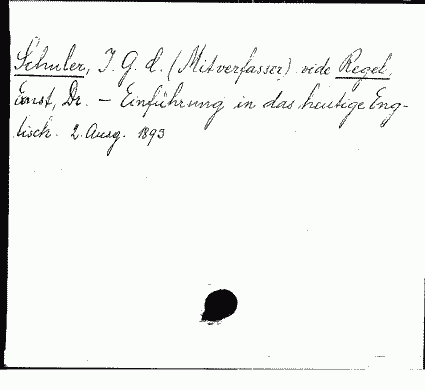 Schuler, J. G. d. (Mitverfasser) vide Regel,
Ernst, Dr. – Einführung in das heutige Eng-
lisch. 2. Ausg. 1893